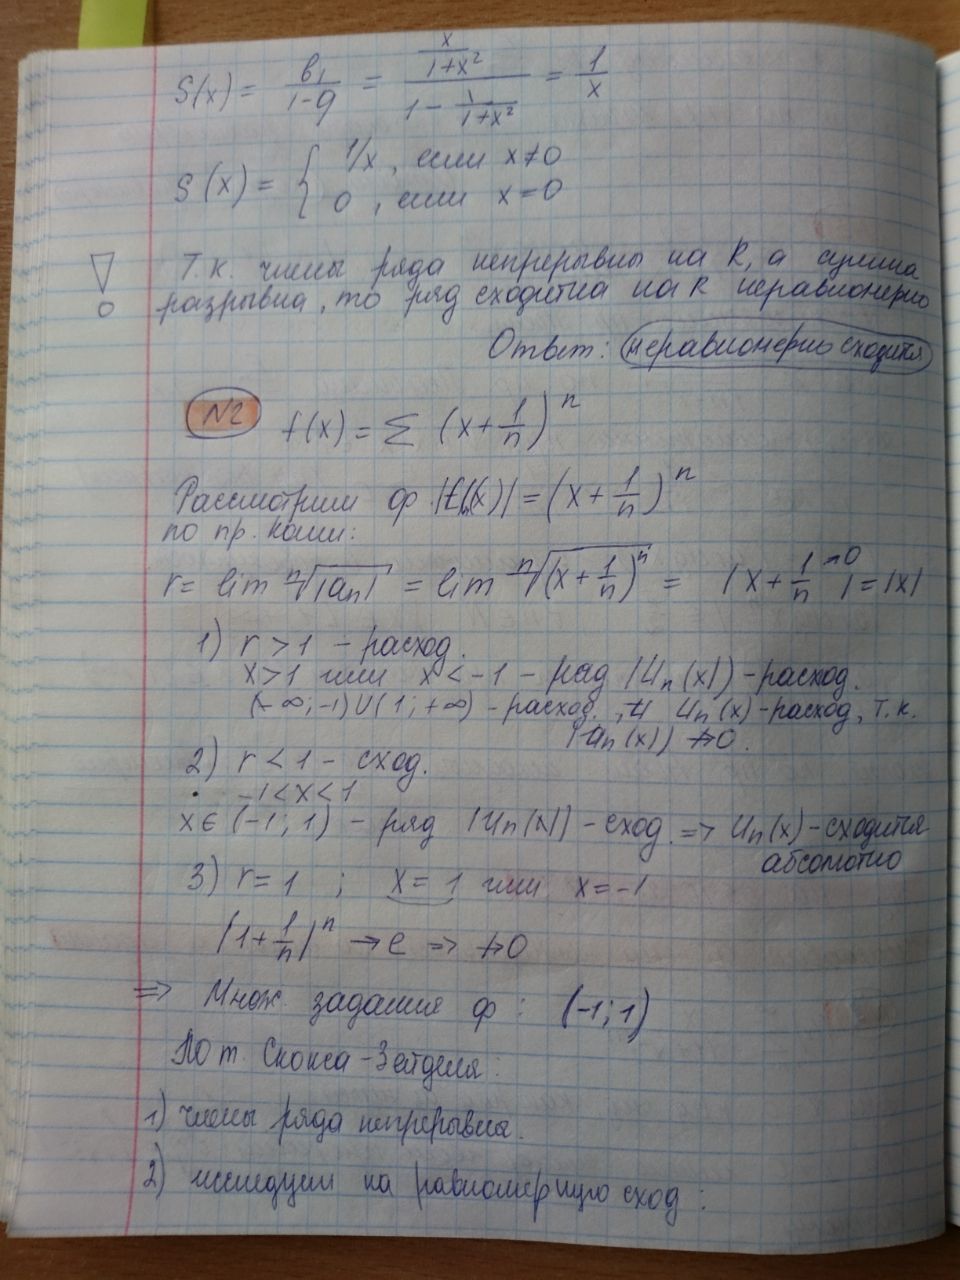 S(x) = b₁/(1-q) = (x/(1+x²))/(1 - 1/(1+x²)) = 1/x
S(x) = { 1/x, если x≠0
0, если x=0
! Т.к. члены ряда непрерывны на R, а сумма
разрывна, то ряд сходится на R неравномерно
Ответ: неравномерно сходится
N2 f(x) = Σ (x+1/n)ⁿ
Рассмотрим ф. = (x+1/n)ⁿ
по пр. Коши:
r = lim ⁿ√|aₙ| = lim ⁿ√(x+1/n)ⁿ = |x+1/n →0| = |x|
1) r > 1 – расход.
x>1 или x<-1 – ряд |Uₙ(x)| – расход.
(-∞;-1)∪(1;+∞) – расход., и Uₙ(x) – расход, т.к.
|aₙ(x)| ↛0.
2) r < 1 – сход.
-1<x<1
x∈(-1;1) – ряд |Uₙ(x)| – сход. => Uₙ(x) – сходится
абсолютно
3) r=1 ; x=1 или x=-1
|1+1/n|ⁿ → e => ↛0
=> Множ. задания ф: (-1;1)
По т. Стокса-Зейделя:
1) члены ряда непрерывны.
2) исследуем на равномерную сход: